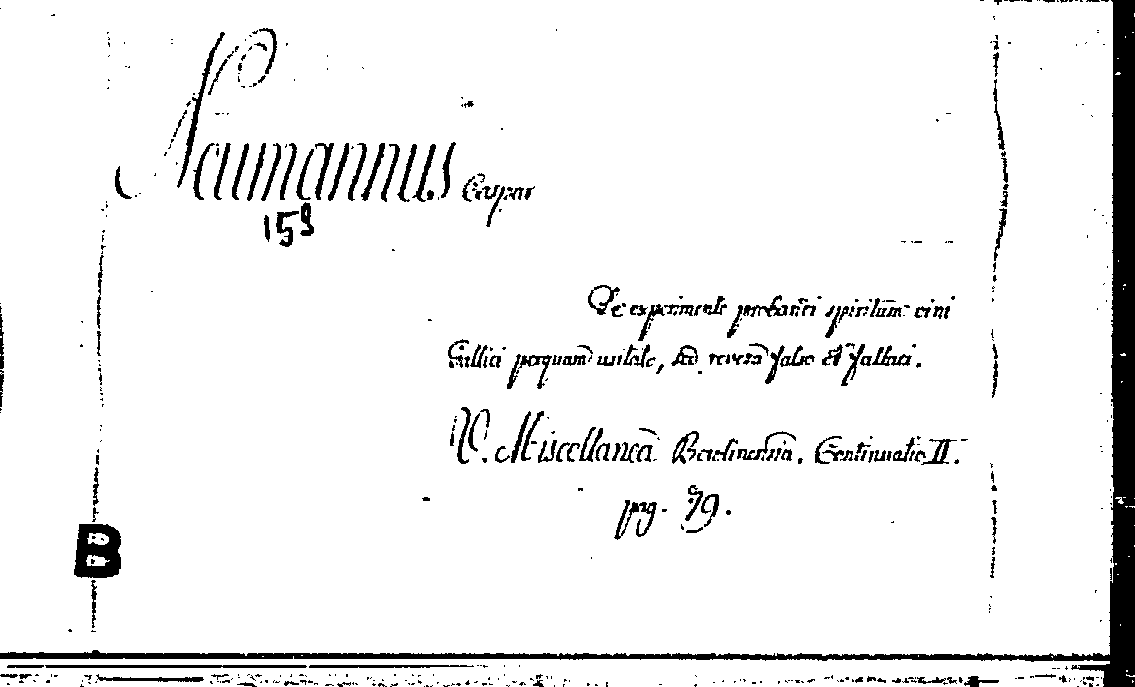 Neumannus Caspar
159
De experimento probandi spiritum vini
Gallici perquam usitato, sed revera falso et fallaci.
V. Miscellanea Berolinensia. Continuatio II.
pag. 79.
B